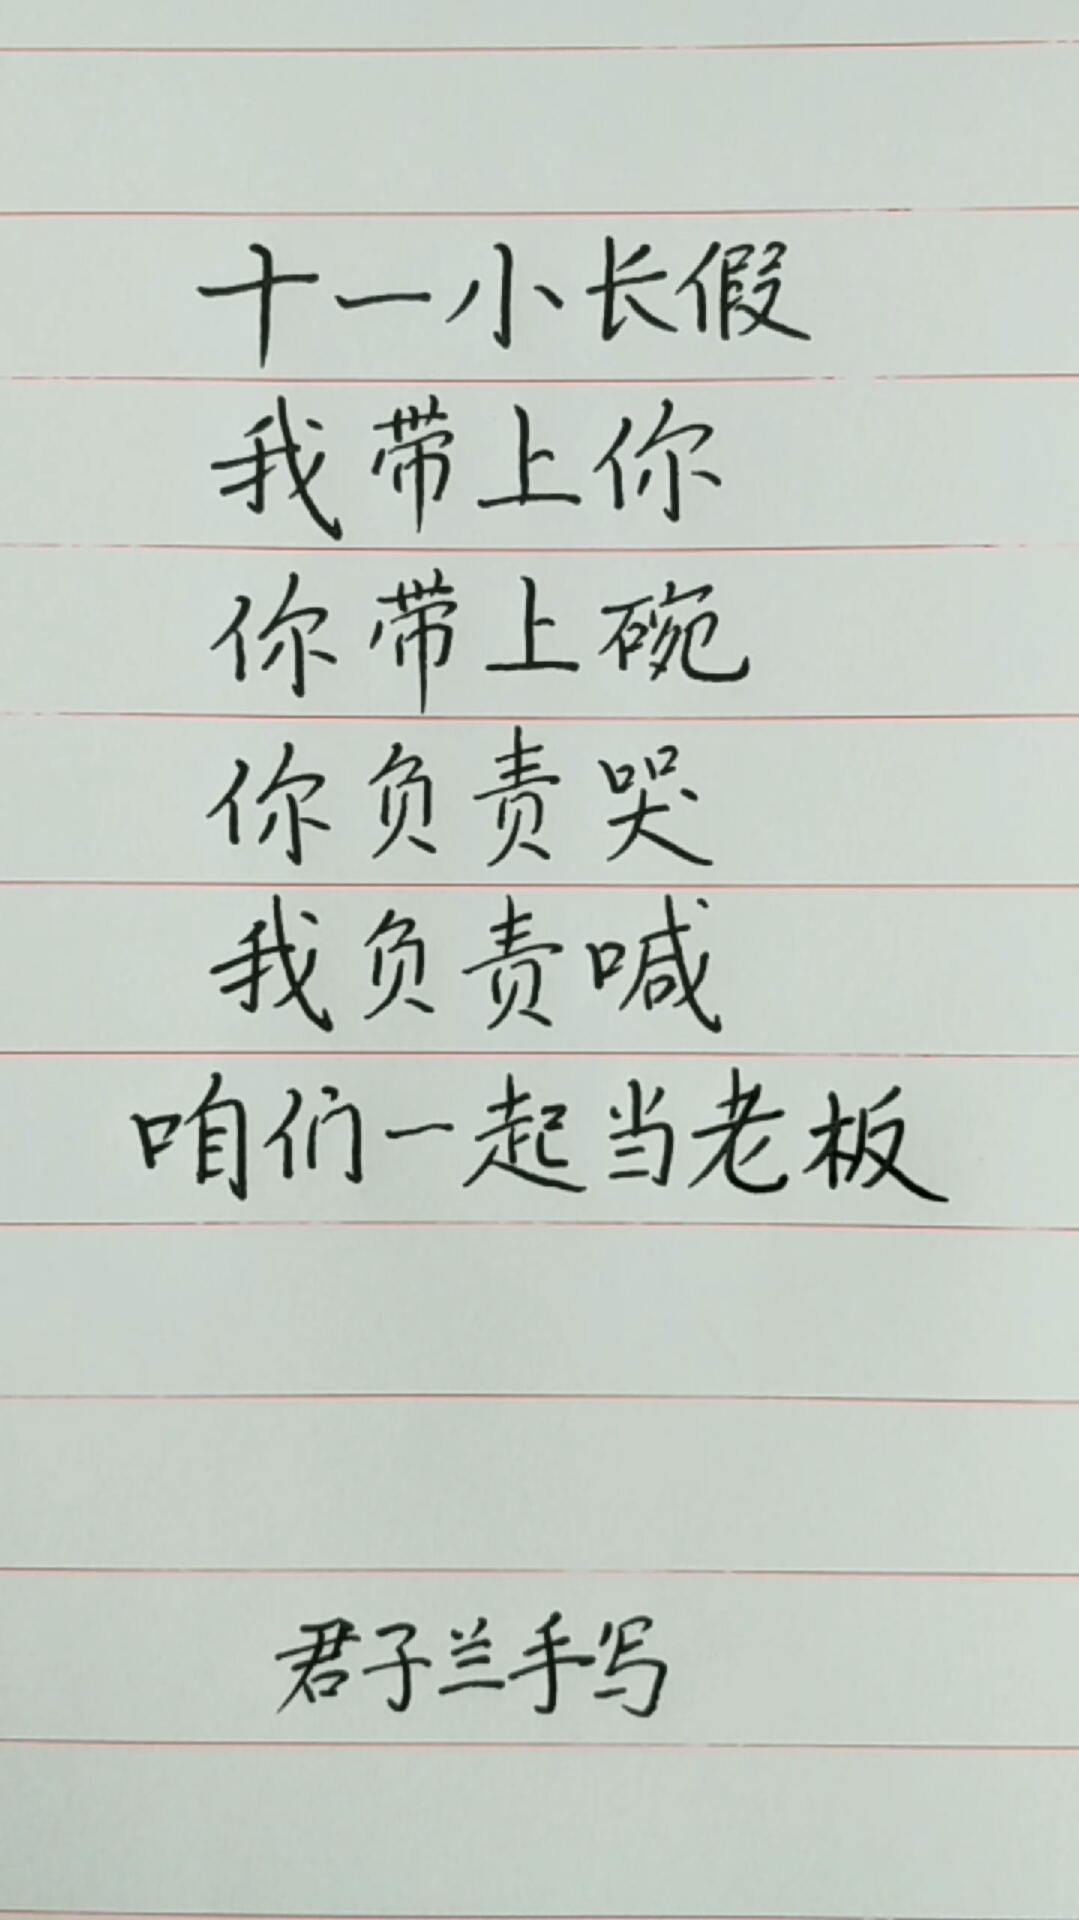 十一小长假
我带上你
你带上碗
你负责哭
我负责喊
咱们一起当老板
君子兰手写